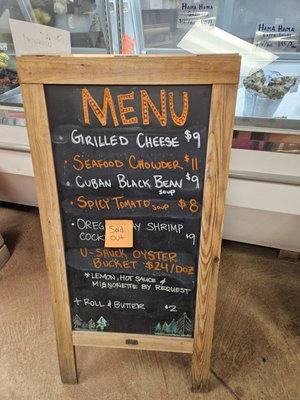 HAMA HAMA
HAMA HAMA
MENU
GRILLED CHEESE $9
SEAFOOD CHOWDER $11
CUBAN BLACK BEAN $9
SOUP
SPICY TOMATO SOUP $8
SHRIMP
COCK $9
Sold
out
U-SHUCK OYSTER
BUCKET $24/DOZ
*LEMON, HOT SAUCE &
MIGNONETTE BY REQUEST
+ ROLL & BUTTER $2